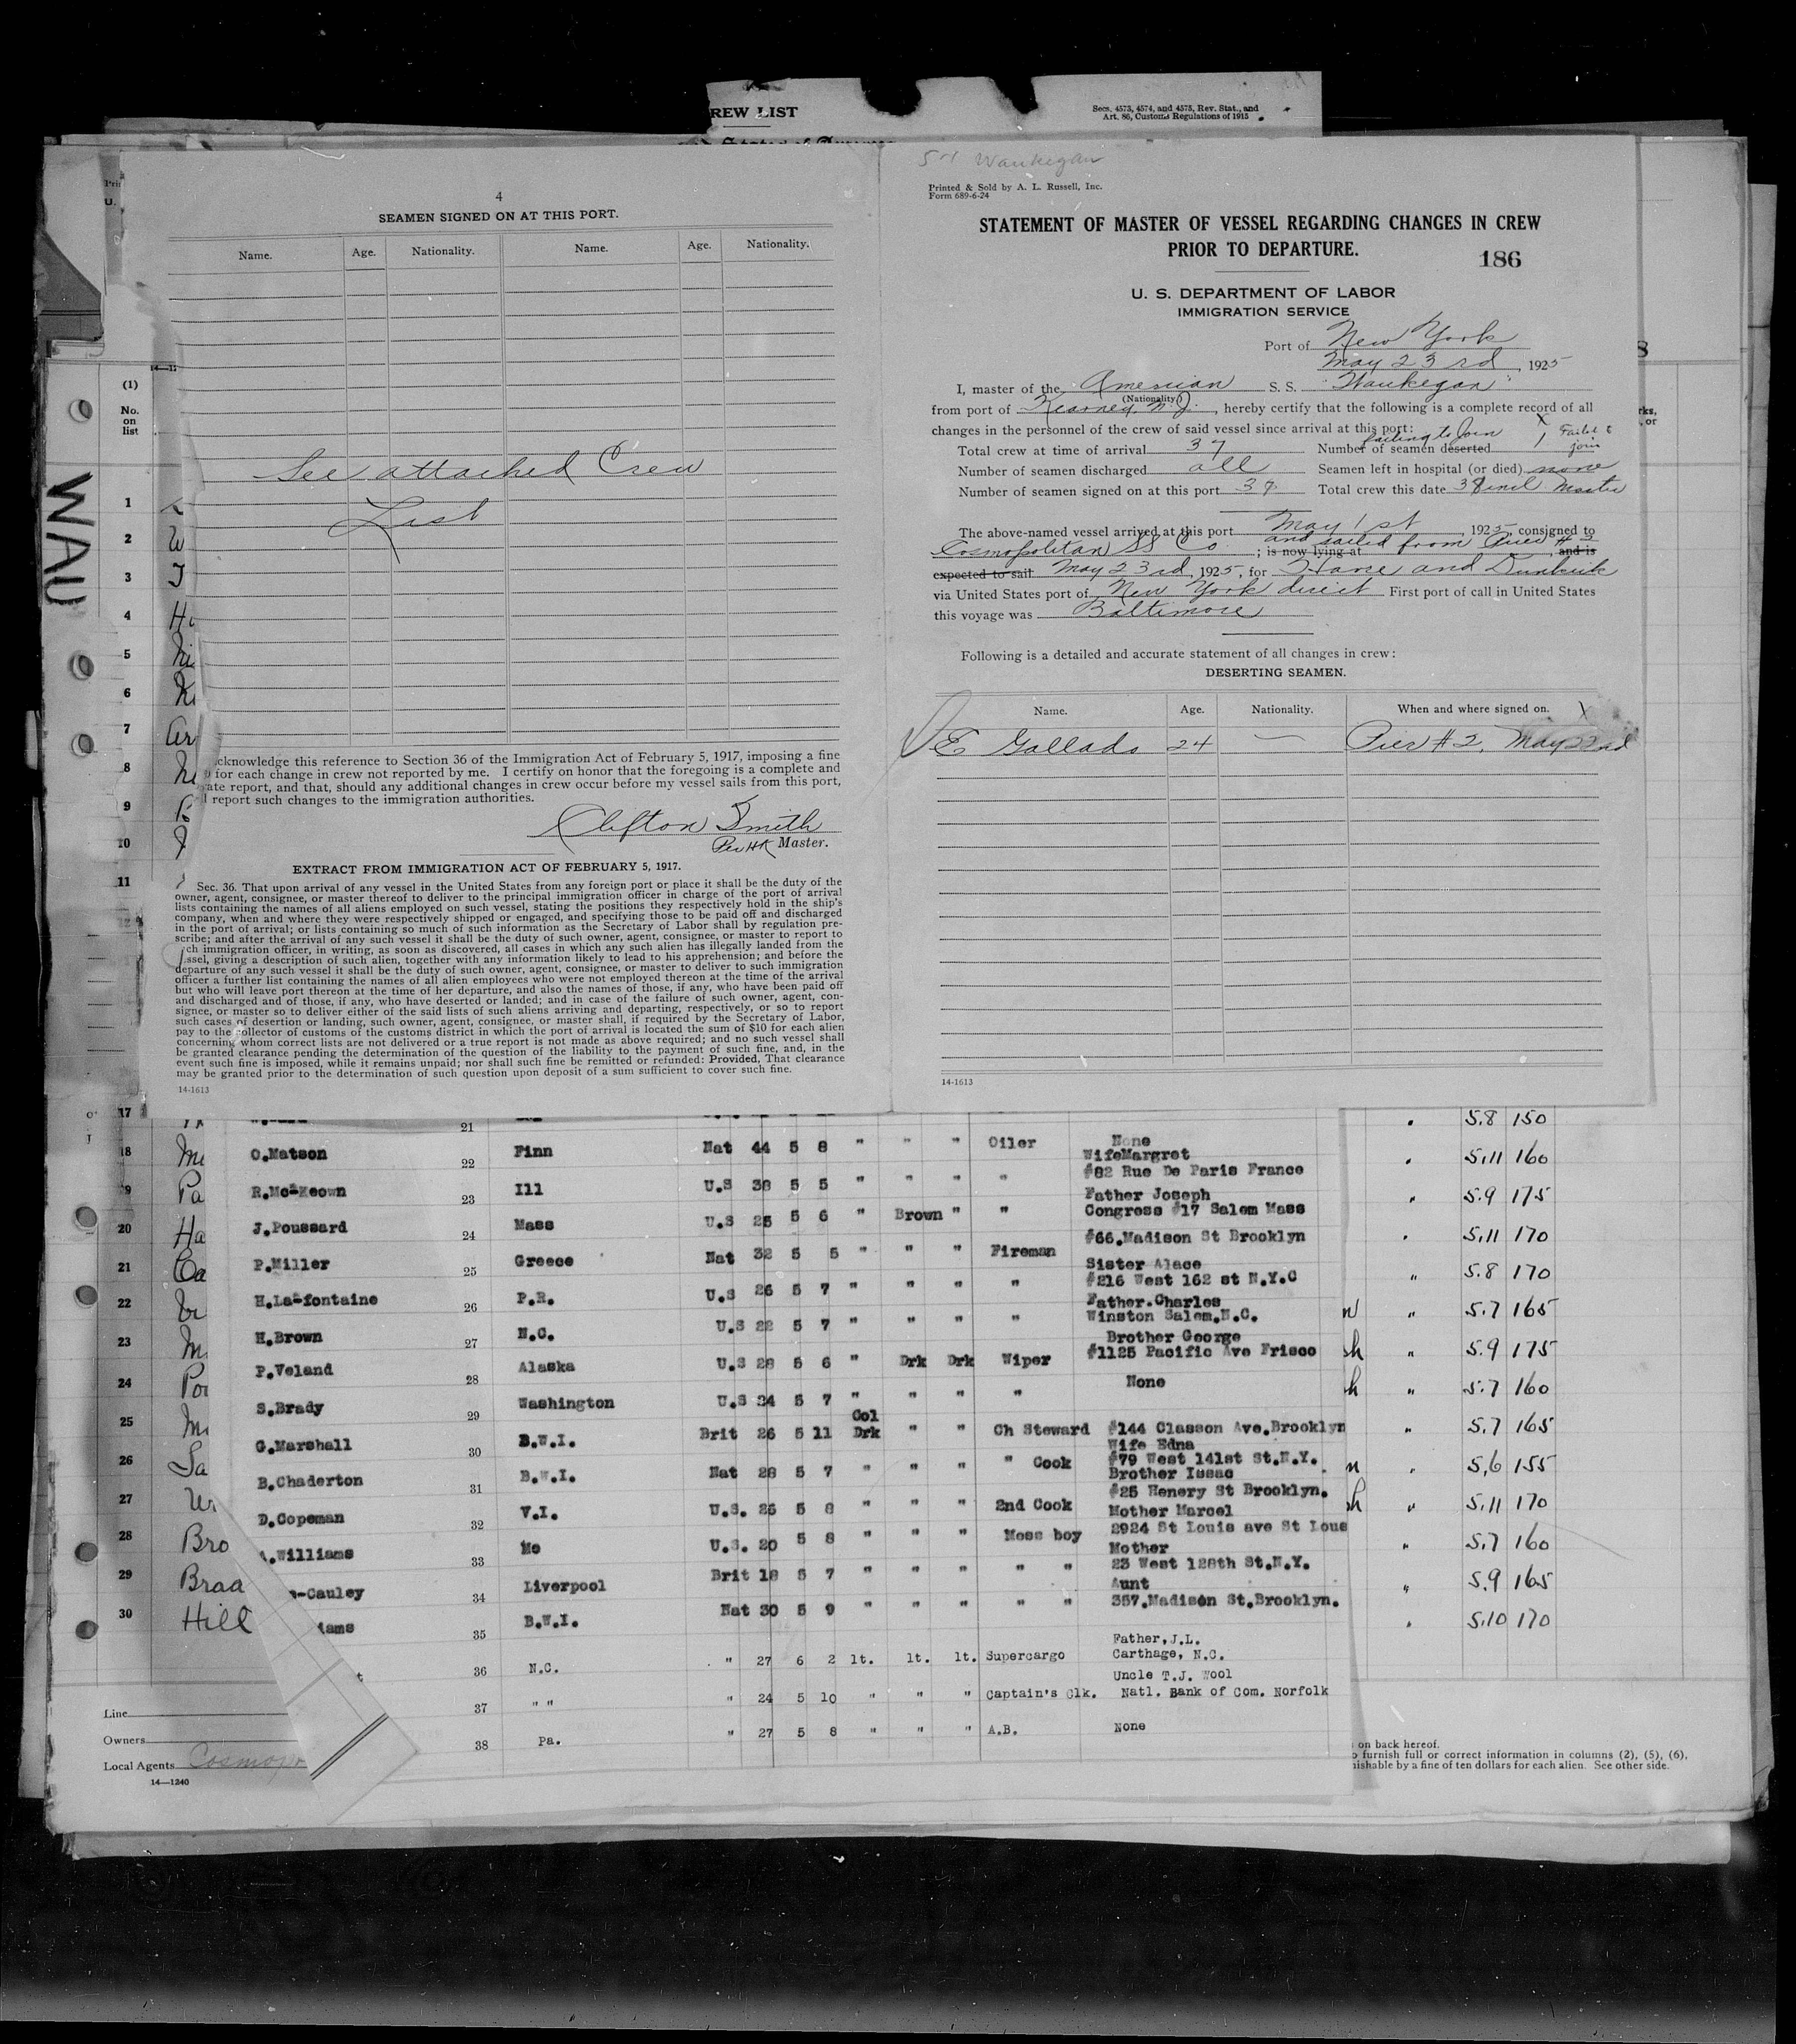 REW LIST
Secs. 4573, 4574, and 4575, Rev. Stat., and
Art. 86, Customs Regulations of 1915
4
SEAMEN SIGNED ON AT THIS PORT.
Name. Age. Nationality. Name. Age. Nationality.
See attached Crew
List
cknowledge this reference to Section 36 of the Immigration Act of February 5, 1917, imposing a fine
for each change in crew not reported by me. I certify on honor that the foregoing is a complete and
ate report, and that, should any additional changes in crew occur before my vessel sails from this port,
l report such changes to the immigration authorities.
Clifton Smith
Per HK Master.
EXTRACT FROM IMMIGRATION ACT OF FEBRUARY 5, 1917.
Sec. 36. That upon arrival of any vessel in the United States from any foreign port or place it shall be the duty of the
owner, agent, consignee, or master thereof to deliver to the principal immigration officer in charge of the port of arrival
lists containing the names of all aliens employed on such vessel, stating the positions they respectively hold in the ship's
company, when and where they were respectively shipped or engaged, and specifying those to be paid off and discharged
in the port of arrival; or lists containing so much of such information as the Secretary of Labor shall by regulation pre-
scribe; and after the arrival of any such vessel it shall be the duty of such owner, agent, consignee, or master to report to
ch immigration officer, in writing, as soon as discovered, all cases in which any such alien has illegally landed from the
ssel, giving a description of such alien, together with any information likely to lead to his apprehension; and before the
departure of any such vessel it shall be the duty of such owner, agent, consignee, or master to deliver to such immigration
officer a further list containing the names of all alien employees who were not employed thereon at the time of the arrival
but who will leave port thereon at the time of her departure, and also the names of those, if any, who have been paid off
and discharged and of those, if any, who have deserted or landed; and in case of the failure of such owner, agent, con-
signee, or master so to deliver either of the said lists of such aliens arriving and departing, respectively, or so to report
such cases of desertion or landing, such owner, agent, consignee, or master shall, if required by the Secretary of Labor,
pay to the collector of customs of the customs district in which the port of arrival is located the sum of $10 for each alien
concerning whom correct lists are not delivered or a true report is not made as above required; and no such vessel shall
be granted clearance pending the determination of the question of the liability to the payment of such fine, and, in the
event such fine is imposed, while it remains unpaid; nor shall such fine be remitted or refunded: Provided, That clearance
may be granted prior to the determination of such question upon deposit of a sum sufficient to cover such fine.
14-1613
Waukegan
Printed & Sold by A. L. Russell, Inc.
Form 689-6-24
STATEMENT OF MASTER OF VESSEL REGARDING CHANGES IN CREW
PRIOR TO DEPARTURE.
186
U. S. DEPARTMENT OF LABOR
IMMIGRATION SERVICE
Port of New York
May 23rd, 1925
I, master of the American S. S. "Waukegan"
(Nationality)
from port of Kearney N.J., hereby certify that the following is a complete record of all
changes in the personnel of the crew of said vessel since arrival at this port:
Total crew at time of arrival 37 Number of seamen deserted failing to Join 1 Failed to join
Number of seamen discharged all Seamen left in hospital (or died) none
Number of seamen signed on at this port 37 Total crew this date 38 incl Master
The above-named vessel arrived at this port May 1st, 1925 consigned to
Cosmopolitan SS Co; is now lying at and sailed from Pier #2, and is
expected to sail May 23rd, 1925, for Havre and Dunkirk
via United States port of New York direct First port of call in United States
this voyage was Baltimore
Following is a detailed and accurate statement of all changes in crew:
DESERTING SEAMEN.
Name. Age. Nationality. When and where signed on.
E Gallado 24 — Pier #2, May 22nd
14-1613
(1)
No.
on
list
WAU
1
2
3
4
5
6
7
8
9
10
11
17 21 5.8 150
18 O.Matson 22 Finn Nat 44 5 8 " " " Oiler None 5.11 160
WifeMargret
19 R.Mc-Keown 23 Ill U.S 38 5 5 " " " #82 Rue De Paris France 5.9 175
Father Joseph
20 J.Poussard 24 Mass U.S 25 5 6 " Brown " " Congress #17 Salem Mass 5.11 170
21 P.Miller 25 Greece Nat 32 5 5 " " " Fireman #66.Madison St Brooklyn 5.8 170
Sister Alace
22 H.La-fontaine 26 P.R. U.S 26 5 7 " " " " #216 West 162 st N.Y.C 5.7 165
Father.Charles
23 H.Brown 27 N.C. U.S 22 5 7 " " " " Winston Salem.N.C. 5.9 175
Brother George
24 P.Veland 28 Alaska U.S 28 5 6 " Drk Drk Wiper #1125 Pacific Ave Frisco 5.7 160
25 S.Brady 29 Washington U.S 24 5 7 " " " " None 5.7 165
Col
26 G.Marshall 30 B.W.I. Brit 26 5 11 Drk " " Ch Steward #144 Classon Ave.Brooklyn 5.6 155
Wife Edna
27 B.Chaderton 31 B.W.I. Nat 28 5 7 " " " " Cook #79 West 141st St.N.Y. 5.11 170
Brother Issac
28 D.Copeman 32 V.I. U.S. 26 5 8 " " " 2nd Cook #25 Henery St Brooklyn. 5.7 160
Mother Marcel
29 A.Williams 33 Mo U.S. 20 5 8 " " " Mess boy 2924 St Louis ave St Loue 5.9 165
Mother
30 -Cauley 34 Liverpool Brit 18 5 7 " " " " " 23 West 128th St.N.Y. 5.10 170
Aunt
Hill iams 35 B.W.I. Nat 30 5 9 " " " " " 357.Madison St.Brooklyn.
Father,J.L.
36 N.C. " 27 6 2 lt. lt. lt. Supercargo Carthage, N.C.
Uncle T.J. Wool
37 " " " 24 5 10 " " " Captain's Clk. Natl. Bank of Com. Norfolk
38 Pa. " 27 5 8 " " " A.B. None
Line
Owners
Local Agents Cosmopo
14—1240
on back hereof.
o furnish full or correct information in columns (2), (5), (6),
nishable by a fine of ten dollars for each alien. See other side.